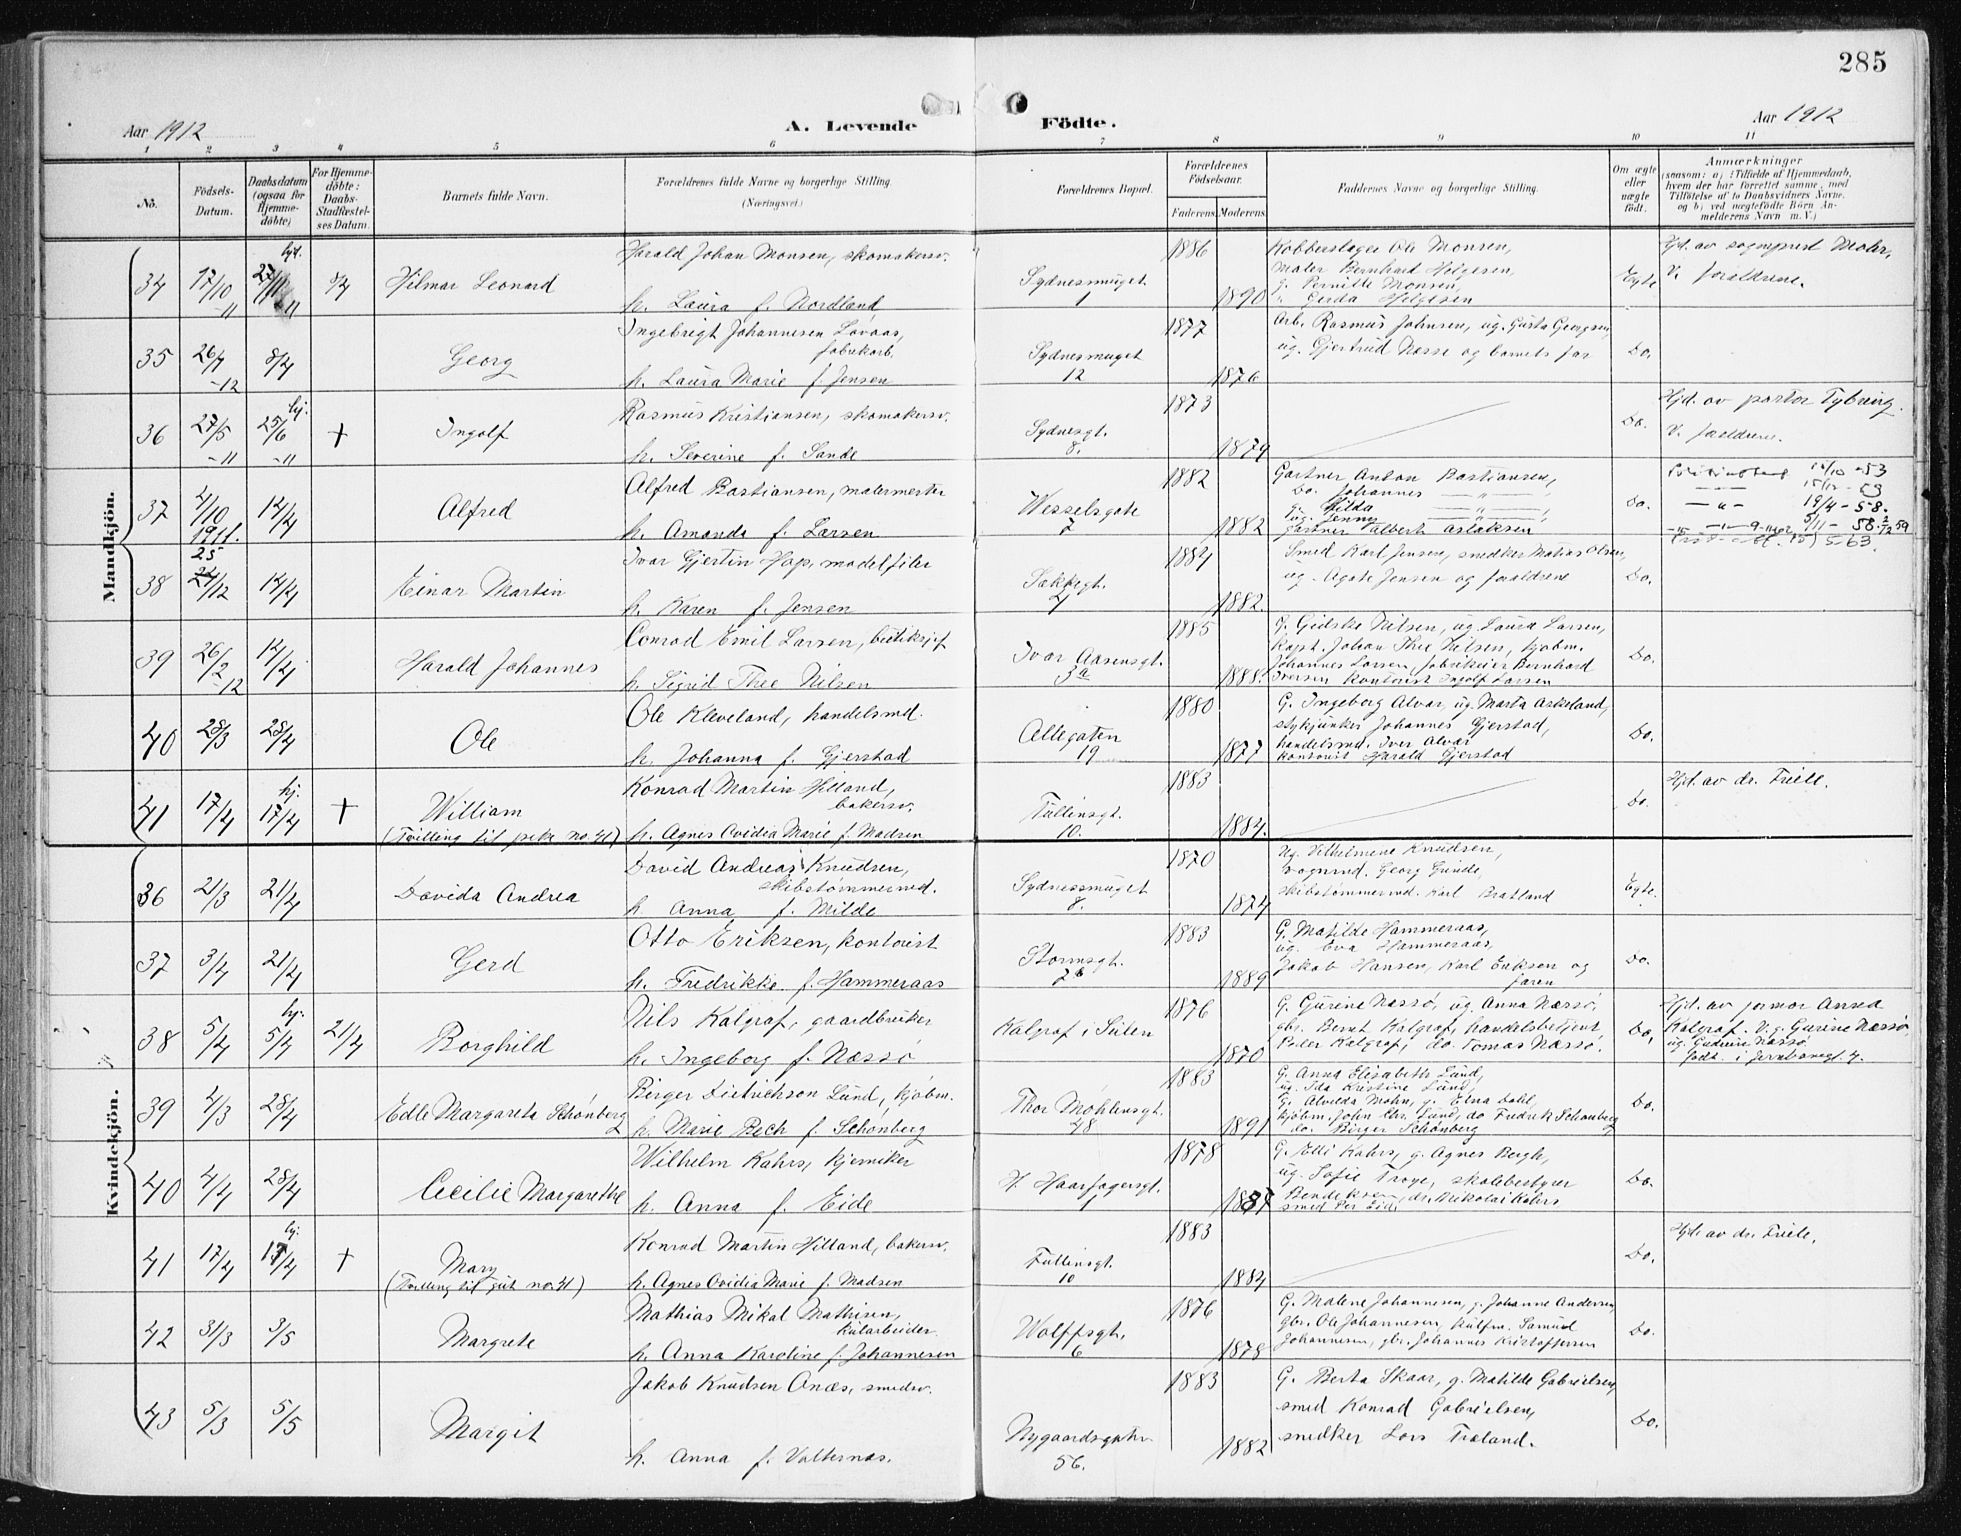 285
Aar 1912
A. Levende Födte.
Aar 1912
1 2 3 4 5 6 7 8 9 10 11
No.
Födsels-Datum.
Daabsdatum (ogsaa for Hjemmedöbte)
For Hjemmedöbte: Daabs-Stadfæstelses Datum.
Barnets fulde Navn.
Forældrenes fulde Navne og borgerlige Stilling.
(Næringsvei.)
Forældrenes Bopæl.
Forældrenes Födselsaar.
Faderens. Moderens.
Faddernes Navne og borgerlige Stilling.
Om ægte eller uægte födt.
Anmærkninger
Mandkjön.
34 17/10 -11 27/11 -11 8/4 Hilmar Leonard
Harald Johan Monsen, skomakersv.
h. Laura f. Nordland
Sydnesmuget 1
1886 1890
Kobberslager Ole Monsen,
maler Bernhard Helgesen,
g. Pernille Monsen,
Gerda Helgesen
Egte
Hjd. av sogneprest Mohr,
V. forældrene.
35 26/1 -12 8/4 Georg
Ingebrigt Johannesen Lovaas,
fabrikarb.
h. Laura Marie f. Jensen
Sydnesmuget 12
1877 1876
Arb. Rasmus Johnsen, ug. Gusta Georgsen,
ug. Gjertrud Næsse og barnets far
Do.
36 27/5 -11 hj. 25/6 -11 + Ingolf
Rasmus Kristiansen, skomakersv.
h. Severine f. Sande
Sydnesgt. 8.
1873 1879
Do.
Hjd. av pastor Tybring.
V. forældrene.
37 4/10 1911. 14/4 Alfred
Alfred Bastiansen, malermester
h. Amanda f. Larsen
Wesselsgate 7
1882 1882
Gartner Anton Bastiansen,
Do. Johannes — " —,
g. Hilda — " —
ug. Jenny — " —,
gartner Albert Aslaksen
Do.
38 25 24/12 14/4 Einar Martin
Ivar Gjertin Hop, modelfiler
h. Karen f. Jensen
1884 1882.
Smed Karl Jensen, snedker Matias Olsen,
ug. Agate Jensen og forældrene
Do.
39 26/2 -12 14/4 Harald Johannes
Conrad Emil Larsen, butikchef
h. Sigrid Thee Nilsen
Ivar Aasensgt. 3a
1885 1888.
Kapt. Johan Thee Nilsen, kjøbm.
Johannes Larsen, fabrikeier Bernhard
Iversen kontorist Ingolf Larsen
Do.
40 28/3 28/4 Ole
Ole Kleveland, handelsmd.
h. Johanna f. Gjerstad
Allegaten 19
1880 1877
G. Ingeborg Alvar, ug. Marta Askeland,
stykjunker Johannes Gjerstad,
handelsmd. Iver Alvar
kontorist Harald Gjerstad
Do.
41 17/4 hj. 17/4 + William
(Tvilling til pike no. 41)
Konrad Martin Hilland,
bakersv.
h. Agnes Ovidia Marie f. Madsen
Tullinsgt. 10.
1883 1884.
Do.
Hjd. av dr. Friele.
Kvindekjön.
36 21/3 21/4 Davida Andrea
David Andreas Knudsen,
skibstømmermd.
h. Anna f. Milde
Sydnessmuget 8.
1870 1874
Ug. Vilhelmine Knudsen,
vognmd. Georg Gunde,
skibstømmermd. Karl Bratland
Egte.
37 3/4 21/4 Gerd
Otto Eriksen, kontorist
h. Fredrikke f. Hammeraas
Stormsgt.
1883 1889
G. Matilde Hammeraas,
ug. Eva Hammeraas,
Jakob Hansen, Karl Eriksen og
faren
Do.
38 5/4 hj. 5/4 21/4 Borghild
Nils Kalgraf, gaardbruker
h. Ingeborg f. Næssø
1876 1870
G. Gurine Næssø, ug. Anna Næssø,
gbr. Bernt Kalgraf, handelsbetjent
Peter Kalgraf, do. Tomas Næssø.
Do,
Hjd. av jormor Ansea
Kalgraf. V. g. Gurine Næssø
ug. Gudrun Næssø
39 4/3 28/4 Edle Margareta Schønberg
Birger Dietrichson Lund, kjøbm.
h. Marie Bech f. Schønberg
Thor Møhlensgt. 48
1883 1891
G. Anna Elisabeth Lund,
ug. Ida Kristine Lund,
G. Alvilda Mohn, g. Elna Dahl,
kjøbm. John Chr. Lund, do Fredrik Schønberg
do. Birger Schønberg
Do.
40 4/4 28/4 Cecilie Margarethe
Wilhelm Kahrs, kjemiker
h. Anna f. Eide
H. Haarfagersgt. 1
1878 1887
G. Elli Kahrs, g. Agnes Bergh,
ug. Sofie Troye, skolebestyrer
Bendeksen, dr. Nikolai Kahrs
smed Per Eide
Do.
41 17/4 hj. 17/4 + Mary
(Tvilling til gut no. 41)
Konrad Martin Hilland, bakersv.
h. Agnes Ovidia Marie f. Madsen
Tullinsgt. 10
1883 1884
Do.
Hjd. av dr. Friele.
42 31/3 3/5 Margrete
Mathias Mikal Mathisen,
kularbeider
h. Anna Karoline f. Johannesen
Wolffsgt. 6
1876 1878
G. Malene Johannesen, g. Johanne Andersen
gbr. Ole Johannesen, kulfm. Samuel
Johannesen, gbr. Johannes Kristoffersen
Do.
43 5/3 5/5 Margit
Jakob Knudsen Onæs, smedsv.
h. Anna f. Valternæs.
Nygaardsgaten 56.
1883 1882
G. Berta Skaar, g. Matilde Gabrielsen,
smed Konrad Gabrielsen,
snedker Lars Træland.
Do.